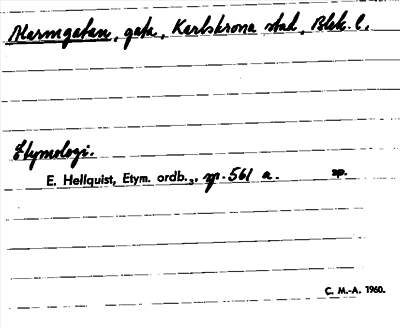 Alarmgatan, gata, Karlskrona stad, Blek. l.
Etymologi.
E. Hellquist, Etym. ordb.3, sp. 561 a. sp.
C. M.-A. 1960.